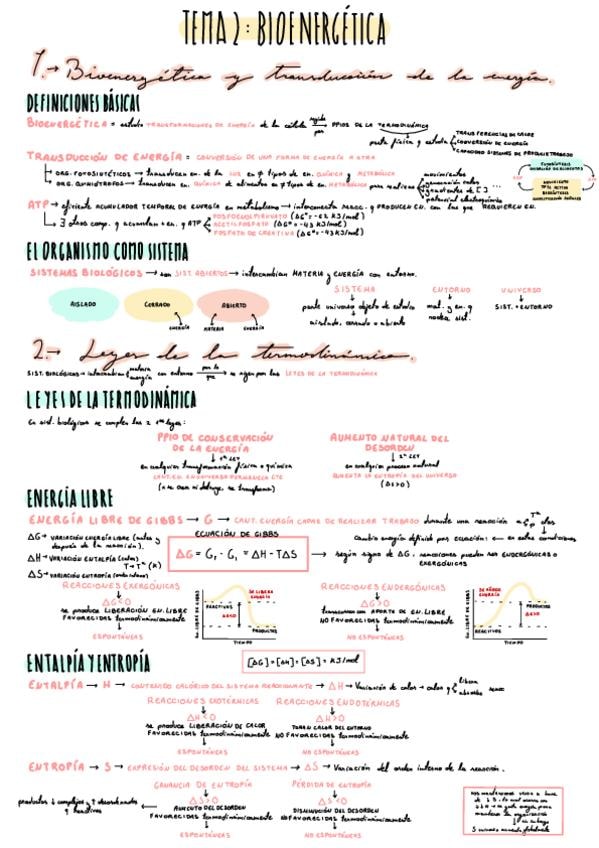 TEMA 2: BIOENERGÉTICA
1.→ Bioenergética y transducción de la energía.
DEFINICIONES BÁSICAS
BIOENERGÉTICA = estudio TRANSFORMACIONES DE ENERGÍA de la célula regida por PPIOS DE LA TERMODINÁMICA
parte física q estudia
TRANSFERENCIAS DE CALOR
CONVERSIÓN DE ENERGÍA
CAPACIDAD SISTEMAS DE PRODUCIR TRABAJO
TRANSDUCCIÓN DE ENERGÍA = CONVERSIÓN DE UNA FORMA DE ENERGÍA A OTRA
ORG. FOTOSINTÉTICOS → transducen en. de la LUZ en ≠ tipos de en. QUÍMICA y METABÓLICA
ORG. QUIMIOTROFOS → transducen en. QUÍMICA de alimentos en ≠ tipos de en. METABÓLICA para realizar
movimientos
gradientes de [ ] ...
potencial electroquímico
ATP → eficiente ACUMULADOR TEMPORAL DE ENERGÍA en metabolismo → interconecta REACC. q PRODUCEN EN. con las que REQUIEREN EN.
∃ otros comp. q acumulan + en. q ATP
FOSFOENOLPIRUVATO (ΔG°= -62 KJ/mol)
ACETILFOSFATO (ΔG°= -43 KJ/mol)
FOSFATO DE CREATINA (ΔG°= -43 KJ/mol)
EL ORGANISMO COMO SISTEMA
SISTEMAS BIOLÓGICOS → son SIST. ABIERTOS → intercambian MATERIA y ENERGÍA con entorno.
AISLADO
CERRADO
ABIERTO
ENERGÍA
MATERIA
ENERGÍA
SISTEMA
parte universo objeto de estudio
aislado, cerrado o abierto
ENTORNO
mat. y en. q
rodea sist.
UNIVERSO
SIST. + ENTORNO
2.→ Leyes de la termodinámica.
SIST. BIOLÓGICOS → intercambian materia energía con entorno por lo que → se rigen por las LEYES DE LA TERMODINÁMICA
LEYES DE LA TERMODINÁMICA
En sist. biológicos se cumplen las 2 1ªs leyes:
PPIO DE CONSERVACIÓN
DE LA ENERGÍA
1ª LEY
en cualquier transformación física o química
CANT. EN. UNIVERSO PERMANECE CTE
AUMENTO NATURAL DEL
DESORDEN
2ª LEY
en cualquier proceso natural
AUMENTA LA ENTROPÍA DEL UNIVERSO
(ΔS>0)
ENERGÍA LIBRE
ENERGÍA LIBRE DE GIBBS → G → CANT. ENERGÍA CAPAZ DE REALIZAR TRABAJO durante una reacción a Tª y p ctes
ΔG → VARIACIÓN ENERGÍA LIBRE (antes y
después de la reacción).
ΔH → VARIACIÓN ENTALPÍA (calor)
T → Tª (K)
ΔS → VARIACIÓN ENTROPÍA
ECUACIÓN DE GIBBS
ΔG = Gf - Gi = ΔH - TΔS
Cambio energía definido por ecuación: ← en estas condiciones
según signo de ΔG, reacciones pueden ser ENDERGÓNICAS o
EXERGÓNICAS
REACCIONES EXERGÓNICAS
ΔG<0
se produce LIBERACIÓN EN. LIBRE
FAVORECIDAS termodinámicamente
ESPONTÁNEAS
EN. LIBRE DE GIBBS
REACTIVOS
SE LIBERA
ENERGÍA
ΔG<0
PRODUCTOS
TIEMPO
REACCIONES ENDERGÓNICAS
ΔG>0
transcurren con APORTE DE EN. LIBRE
NO FAVORECIDAS termodinámicamente
NO ESPONTÁNEAS
EN. LIBRE DE GIBBS
ENERGÍA
PRODUCTOS
ΔG>0
REACTIVOS
TIEMPO
ENTALPÍA Y ENTROPÍA
[ΔG] = [ΔH] = [ΔS] = KJ/mol
ENTALPÍA → H → CONTENIDO CALÓRICO DEL SISTEMA REACCIONANTE → ΔH → Variación de calor → calor q libera absorbe reacc
REACCIONES EXOTÉRMICAS
ΔH<0
se produce LIBERACIÓN DE CALOR
FAVORECIDAS termodinámicamente
ESPONTÁNEAS
REACCIONES ENDOTÉRMICAS
ΔH>0
TOMAN CALOR DEL ENTORNO
NO FAVORECIDAS termodinámicamente
NO ESPONTÁNEAS
ENTROPÍA → S → EXPRESIÓN DEL DESORDEN DEL SISTEMA → ΔS → Variación del orden interno de la reacción.
GANANCIA DE ENTROPÍA
ΔS>0
AUMENTO DEL DESORDEN
FAVORECIDAS termodinámicamente
ESPONTÁNEAS
productos ↓ complejos y ↑ desordenados
q reactivos
PÉRDIDA DE ENTROPÍA
ΔS<0
DISMINUCIÓN DEL DESORDEN
NO FAVORECIDAS termodinámicamente
NO ESPONTÁNEAS